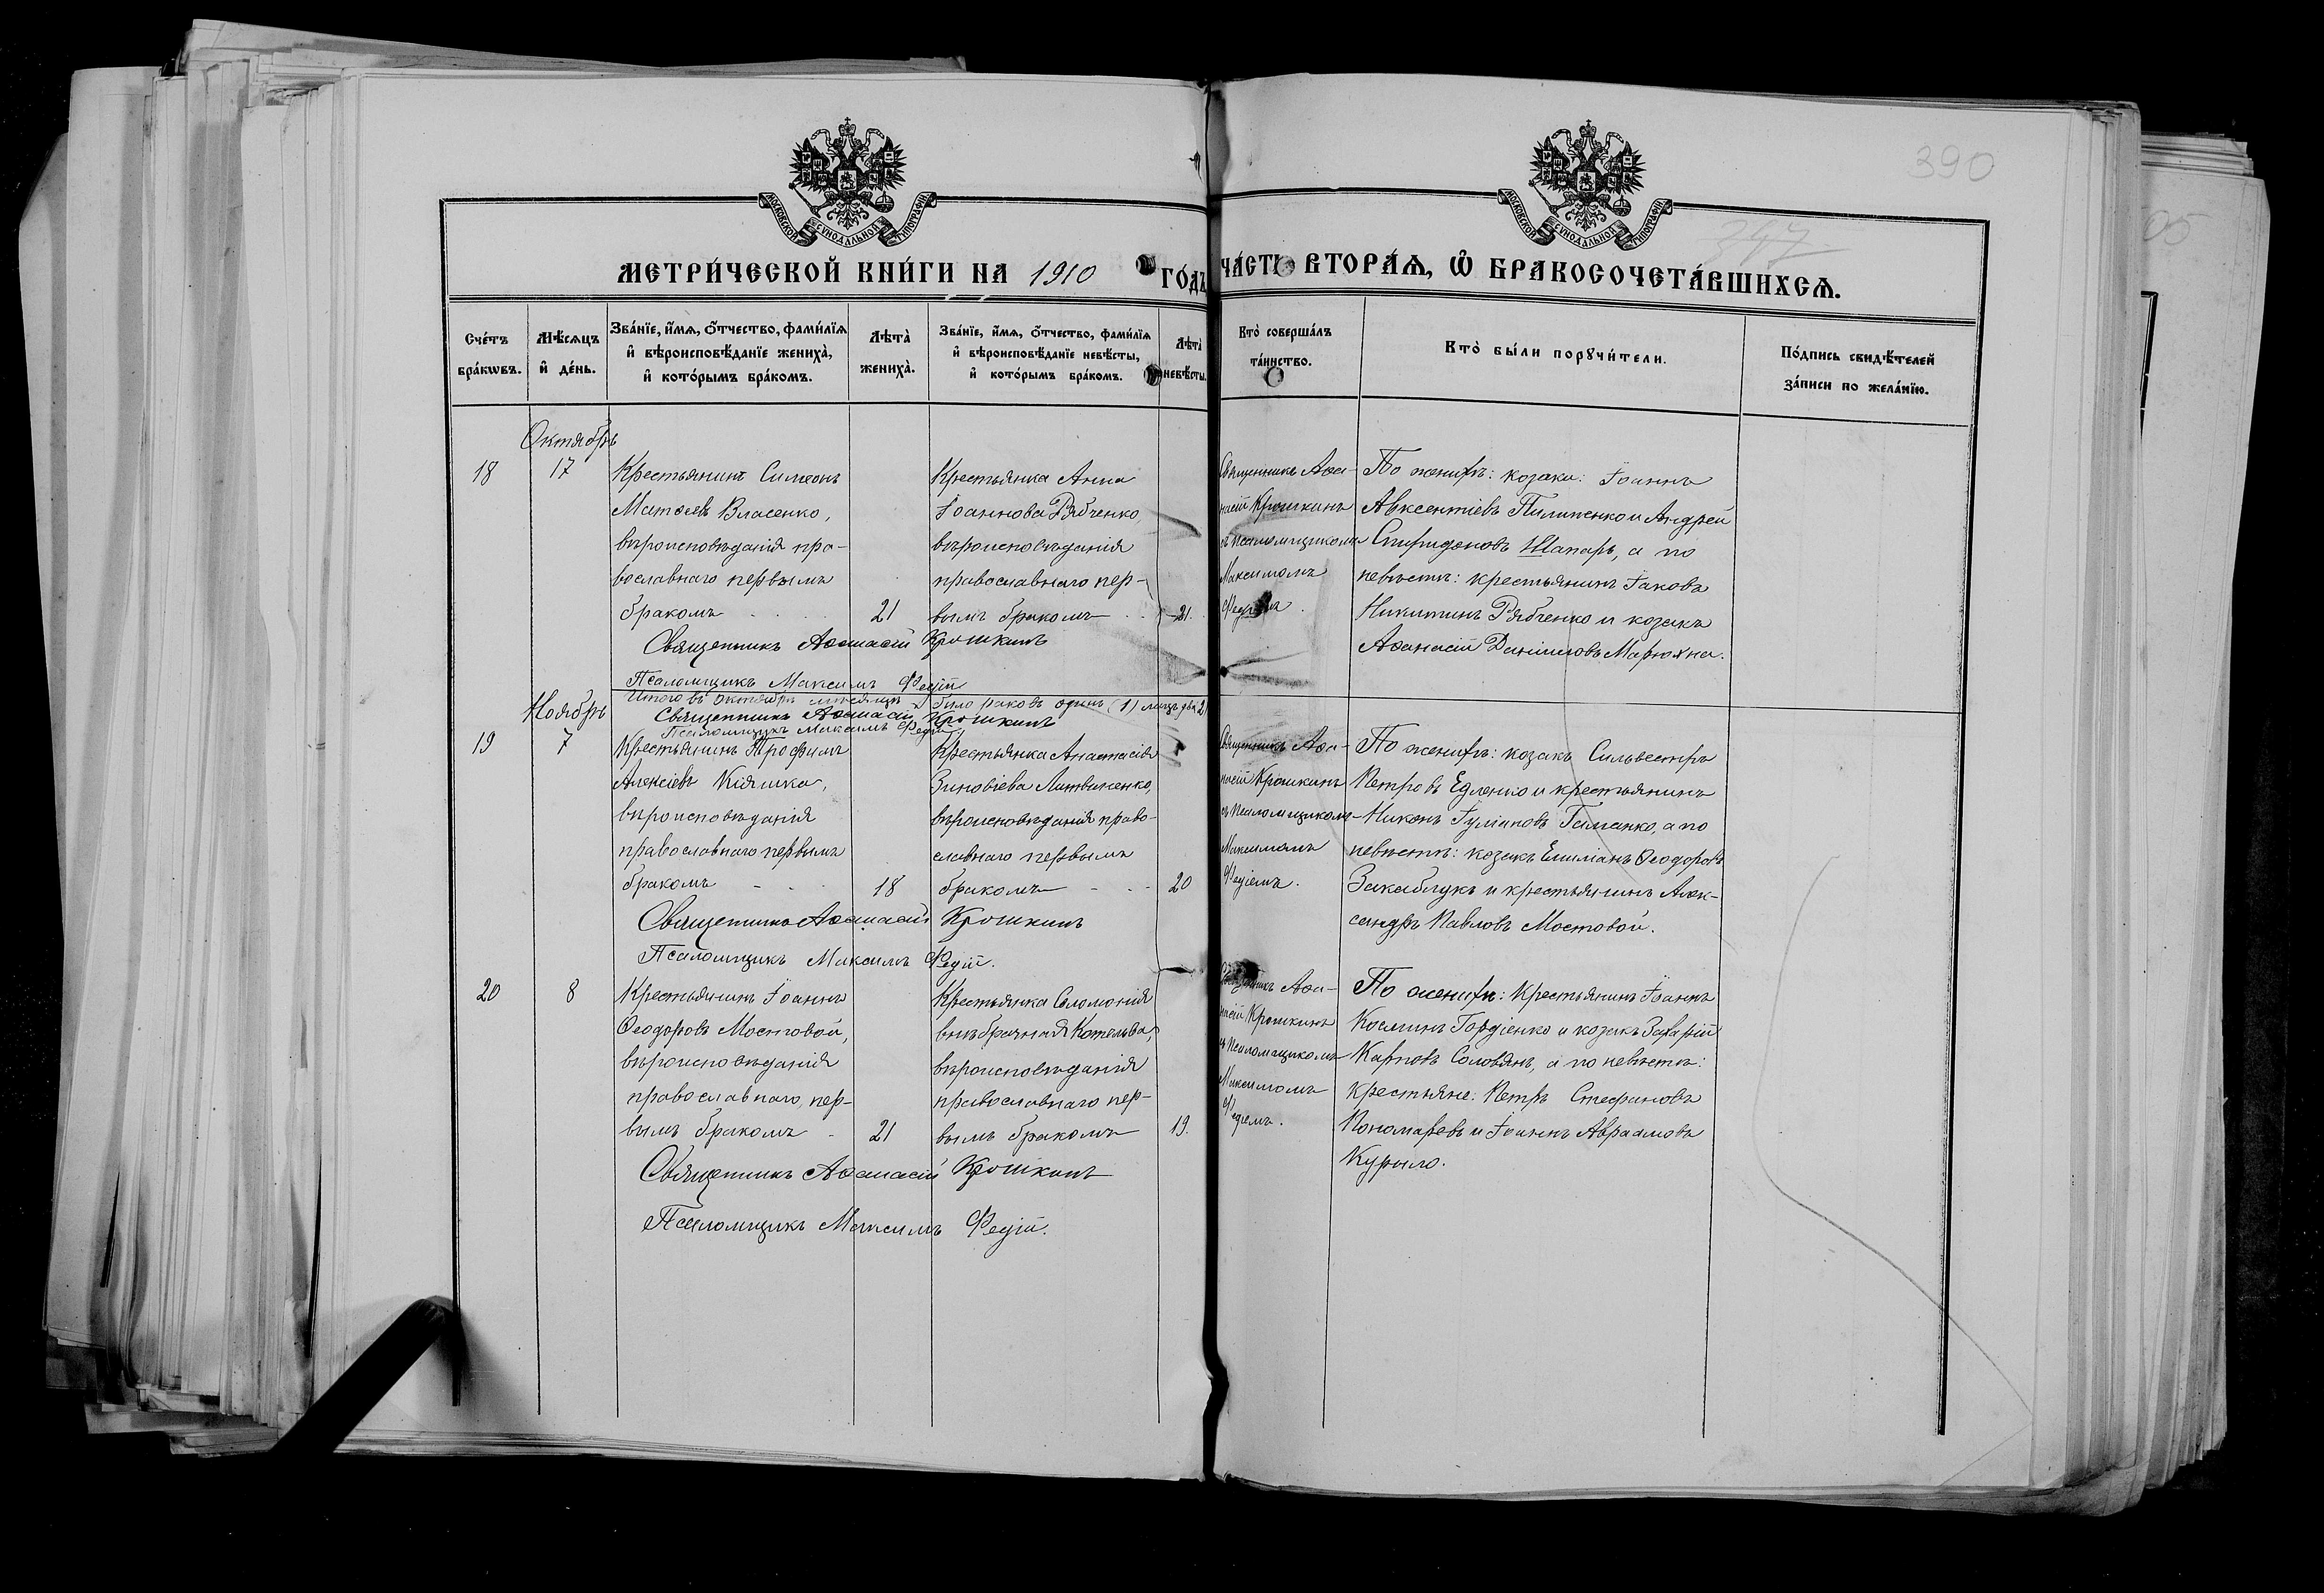 390
347
МОСКОВСКОЙ СѴНОДАЛЬНОЙ ТИПОГРАФІИ
МОСКОВСКОЙ СѴНОДАЛЬНОЙ ТИПОГРАФІИ
МЕТРИ́ЧЕСКОЙ КНИ́ГИ НА 1910 ГО́ДЪ
ЧА́СТЬ ВТОРА́Ѧ, Ѽ БРАКОСОЧЕТА́ВШИХСѦ.
Сче́тъ бра́кѡвъ.
Мѣ́сѧцъ и҆ де́нь.
Зва́нїе, и҆́мѧ, ѻ҆́тчество, фами́лїѧ и҆ вѣроисповѣ́данїе жениха̀, и҆ кото́рымъ бра́комъ.
Лѣта̀ жениха̀.
Зва́нїе, и҆́мѧ, ѻ҆́тчество, фами́лїѧ и҆ вѣроисповѣ́данїе невѣ́сты, и҆ кото́рымъ бра́комъ.
Лѣта̀ невѣ́сты.
Кто̀ соверша́лъ та́инство.
Кто̀ бы́ли порꙋчи́тели.
По́дпись свидѣ́телей за́писи по жела́нїю.
Октябрь
18
17
Крестьянинъ Симеонъ
Матѳеевъ Власенко,
вѣроисповѣданія пра-
вославнаго первымъ
бракомъ
21
Крестьянка Анна
Іоаннова Рябченко,
вѣроисповѣданія
православнаго пер-
вымъ бракомъ
21.
Священникъ Аѳа-
насій Крошкинъ
съ псаломщикомъ
Максимомъ
По женихѣ: козаки: Іоаннъ
Авксентіевъ Пилипенко и Андрей
Спиридоновъ Шапарь, а по
невѣстѣ: крестьянинъ Іаковъ
Никитинъ Рябченко и козакъ
Аѳанасій Даніиловъ Марюхна.
Священникъ Аѳанасій Крошкинъ
Псаломщикъ Максимъ Федій
Итого въ октябрѣ мѣсяцѣ было браковъ одинъ (1) лицъ два 2)
Священникъ Аѳанасій Крошкинъ
Псаломщикъ Максимъ Федій
Ноябрь
19
7
Крестьянинъ Трофимъ
Алексіевъ Кіяшко,
вѣроисповѣданія
православнаго первымъ
бракомъ
18
Крестьянка Анастасія
Зиновіева Литвиненко,
вѣроисповѣданія право-
славнаго первымъ
бракомъ
20
Священникъ Аѳа-
насій Крошкинъ
съ псаломщикомъ
Максимомъ
Федіемъ.
По женихѣ: козакъ Сильвестръ
Петровъ Едленко и крестьянинъ
Никонъ Іуліановъ Гаманко, а по
невѣстѣ: козакъ Емиліанъ Ѳеодоровъ
Закаблукъ и крестьянинъ Алек-
сандръ Павловъ Мостовой.
Священникъ Аѳанасій Крошкинъ
Псаломщикъ Максимъ Федій.
20
8
Крестьянинъ Іоаннъ
Ѳеодоровъ Мостовой,
вѣроисповѣданія
православнаго, пер-
вымъ бракомъ
21
Крестьянка Соломонія
внѣбрачная Котельва,
вѣроисповѣданія
православнаго пер-
вымъ бракомъ
19.
Священникъ Аѳа-
насій Крошкинъ
съ псаломщикомъ
Максимомъ
Федіемъ.
По женихѣ: крестьянинъ Іоаннъ
Косминъ Гордіенко и козакъ Захарій
Карповъ Соловянъ, а по невѣстѣ:
крестьяне: Петръ Стефановъ
Пономаревъ и Іоаннъ Авраамовъ
Курыло.
Священникъ Аѳанасій Крошкинъ
Псаломщикъ Максимъ Федій.